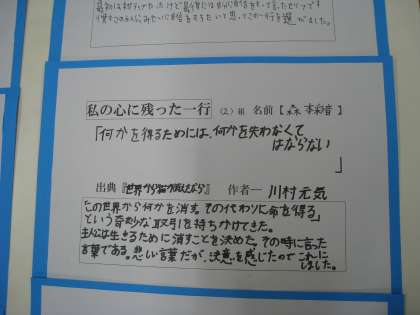 私の心に残った一行 (2)組 名前【森 本彩音】
「何かを得るためには、何かを失わなくて
はならない
」
出典『世界から猫が消えたなら』 作者― 川村元気
「この世界から何かを消す。その代わりに命を得る」
という奇妙な取引を持ちかけてきた。
主人公は生きるために消すことを決めた。その時に言った
言葉である。悲しい言葉だが、決意を感じたのでこれに
しました。